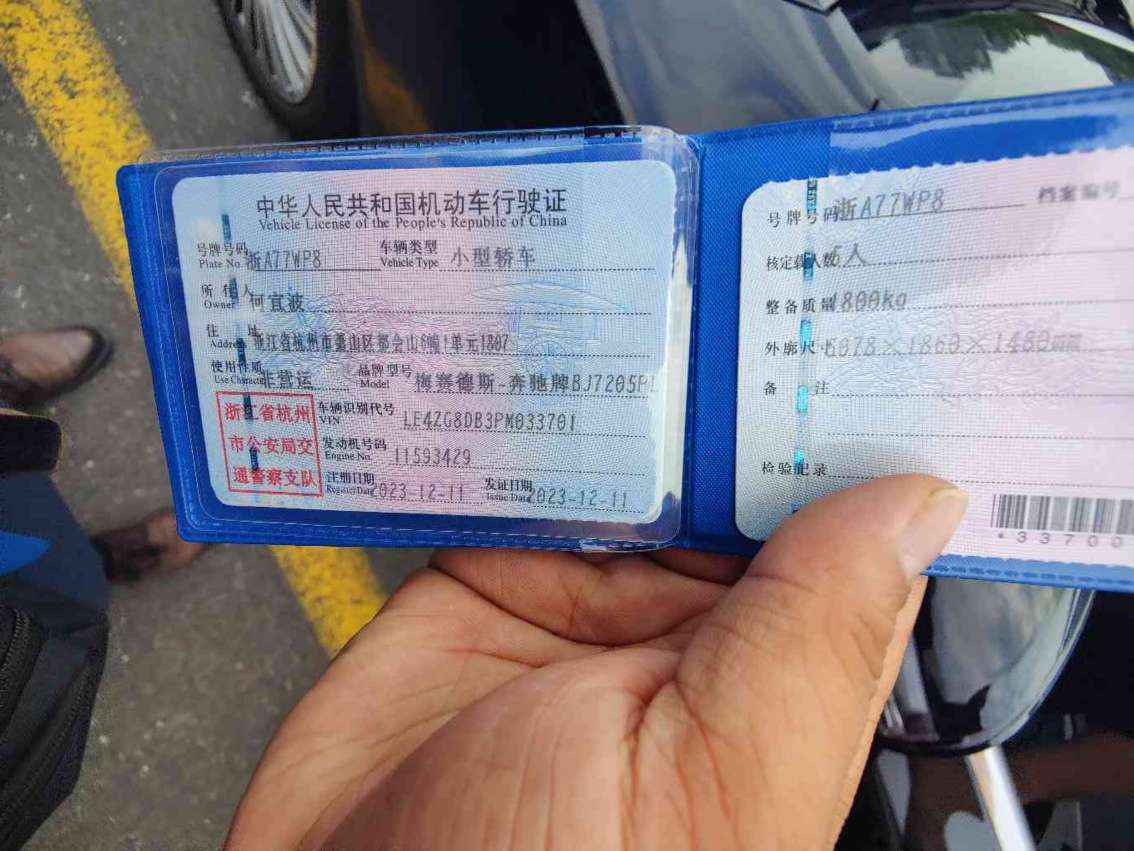 中华人民共和国机动车行驶证
Vehicle License of the People's Republic of China
号牌号码 浙A77WP8 车辆类型 小型轿车
Plate No. Vehicle Type
所有人 何宜波
Owner
住址 浙江省杭州市萧山区都会山6幢1单元1807
Address
使用性质 非营运 品牌型号 梅赛德斯-奔驰牌BJ7205
Use Character Model
浙江省杭州
市公安局交
通警察支队
车辆识别代号 LE4ZG8DB3PM033701
VIN
发动机号码 11593429
Engine No.
注册日期 023-12-11 发证日期 2023-12-11
Register Date Issue Date
号牌号码 浙A77WP8 档案编号
核定载人数 5人
整备质量 1800kg
外廓尺寸 5078×1860×1480mm
备注
检验记录
*33700